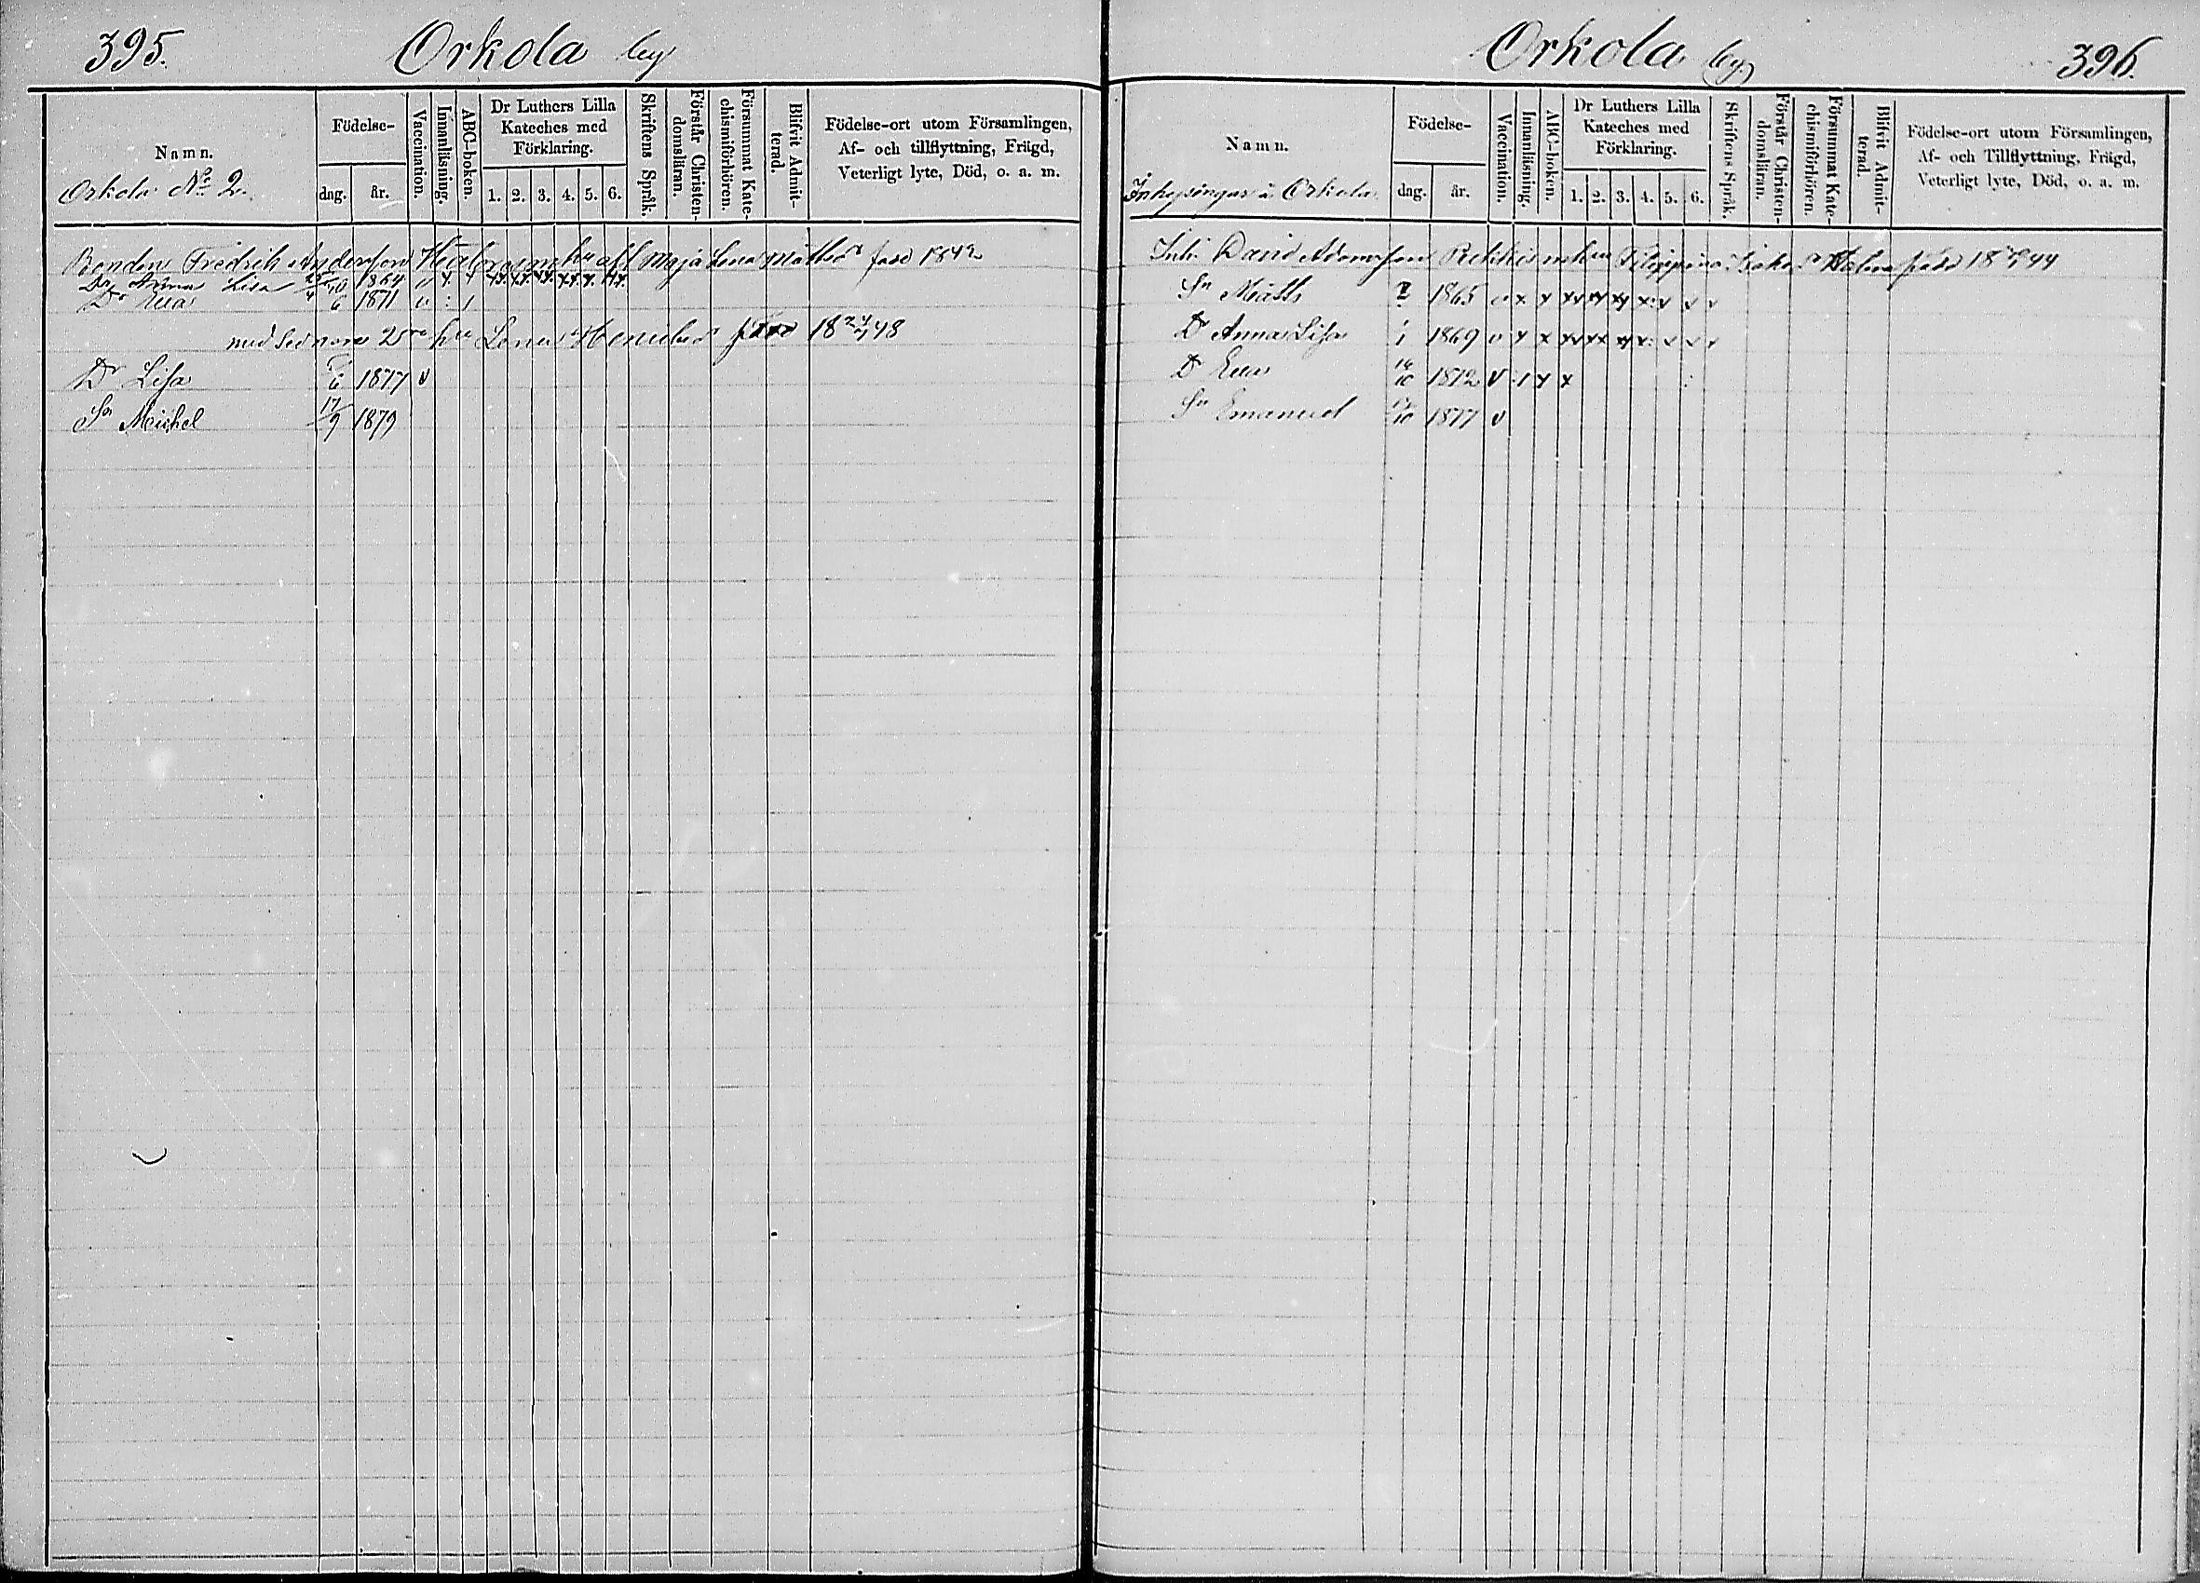 395. Orkola by
Namn.
Orkola No 2.
Födelse-
dag. år.
Vaccination.
Innanläsning.
ABC-boken.
Dr Luthers Lilla
Kateches med
Förklaring.
1. 2. 3. 4. 5. 6.
Skriftens Språk.
Förstår Christen-
domsläran.
Försummat Kate-
chismiförhören.
Blifvit Admit-
terad.
Födelse-ort utom Församlingen,
Af- och tillflyttning, Frägd,
Veterligt lyte, Död, o. a. m.
Bonden Fredrik Andersson hu afl Maja Lena Mattsdr född 1842
Dr Anna Lisa 1864 v
Dr Eva 1871 v
med sednare 2dra hu Lena Henriksdr född 18 48
Dr Lisa 1877 v
Sn Michel 17/9 1879
Orkola by 396.
Namn.
Inhysingar å Orkola.
Födelse-
dag. år.
Vaccination.
Innanläsning.
ABC-boken.
Dr Luthers Lilla
Kateches med
Förklaring.
1. 2. 3. 4. 5. 6.
Skriftens Språk.
Förstår Christen-
domsläran.
Försummat Kate-
chismiförhören.
Blifvit Admit-
terad.
Födelse-ort utom Församlingen,
Af- och Tillflyttning, Frägd,
Veterligt lyte, Död, o. a. m.
David Adamsson hu Filippina född 18 44
Sn Matts 1865 v x x xx xx xx x v v v
Dr Anna Lisa 1869 v x x xx xx xx x v v v
Dr Eva 1872 v
Sn Emanuel 1877 v